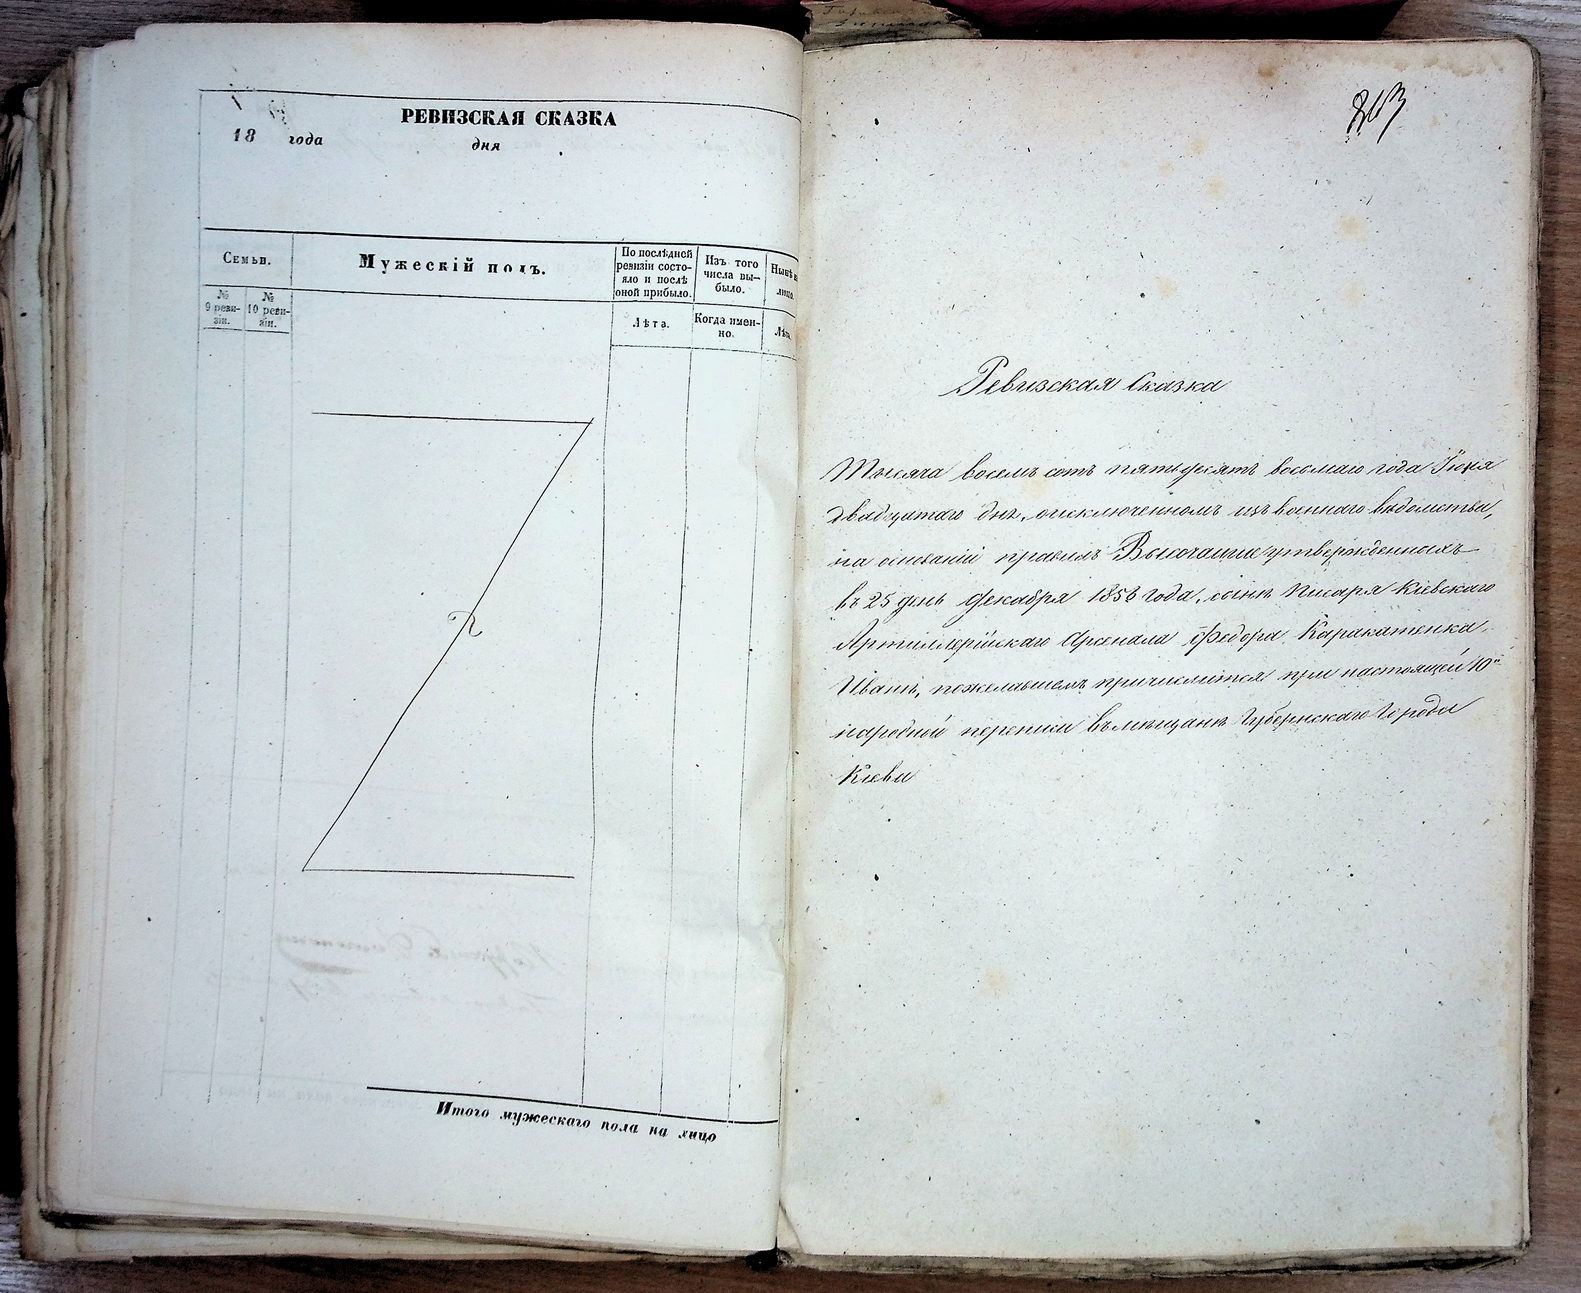 РЕВИЗСКАЯ СКАЗКА
18 года дня
Семьи.
№ 9 ревизіи.
№ 10 ревизіи.
Мужескій полъ.
По послѣдней ревизіи состояло и послѣ оной прибыло.
Изъ того числа выбыло.
Нынѣ
Лѣта.
Когда именно.
Лѣта.
Итого мужескаго пола на лицо
203
Ревизская Сказка
Тысяча восемъ сотъ пятьдесятъ восьмаго года Іюня
двадцатаго дня, о исключенномъ изъ военнаго вѣдомства,
на основаніи правилъ Высочайше утвержденныхъ
въ 25 день Декабря 1856 года, сынѣ Писаря Кіевскаго
Артиллерійскаго Арсенала Федора Каракатенка
Иванѣ, пожелавшемъ причислится при настоящей 10й
народной переписи въ мѣщане Губернскаго Города
Кіева